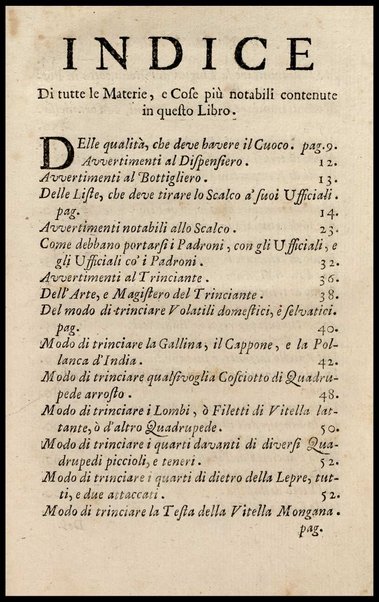 INDICE
Di tutte le Materie, e Coſe più notabili contenute
in queſto Libro.
DElle qualità, che deve havere il Cuoco. pag. 9.
Avvertimenti al Diſpenſiero. 12.
Avvertimenti al Bottigliero. 13.
Delle Liſte, che deve tirare lo Scalco a' ſuoi Ufficiali.
pag. 14.
Avvertimenti notabili allo Scalco. 23.
Come debbano portarſi i Padroni, con gli Ufficiali, e
gli Ufficiali co' i Padroni. 32.
Avvertimenti al Trinciante. 36.
Dell'Arte, e Magiſtero del Trinciante. 38.
Del modo di trinciare Volatili domeſtici, e ſelvatici.
pag. 40.
Modo di trinciare la Gallina, il Cappone, e la Pol-
lanca d'India. 42.
Modo di trinciare qualſivoglia Coſciotto di Quadru-
pede arroſto. 48.
Modo di trinciare i Lombi, ò Filetti di Vitella lat-
tante, ò d'altro Quadrupede. 50.
Modo di trinciare i quarti davanti di diverſi Qua-
drupedi piccioli, e teneri. 52.
Modo di trinciare i quarti di dietro della Lepre, tut-
ti, e due attaccati. 52.
Modo di trinciare la Teſta della Vitella Mongana.
pag.